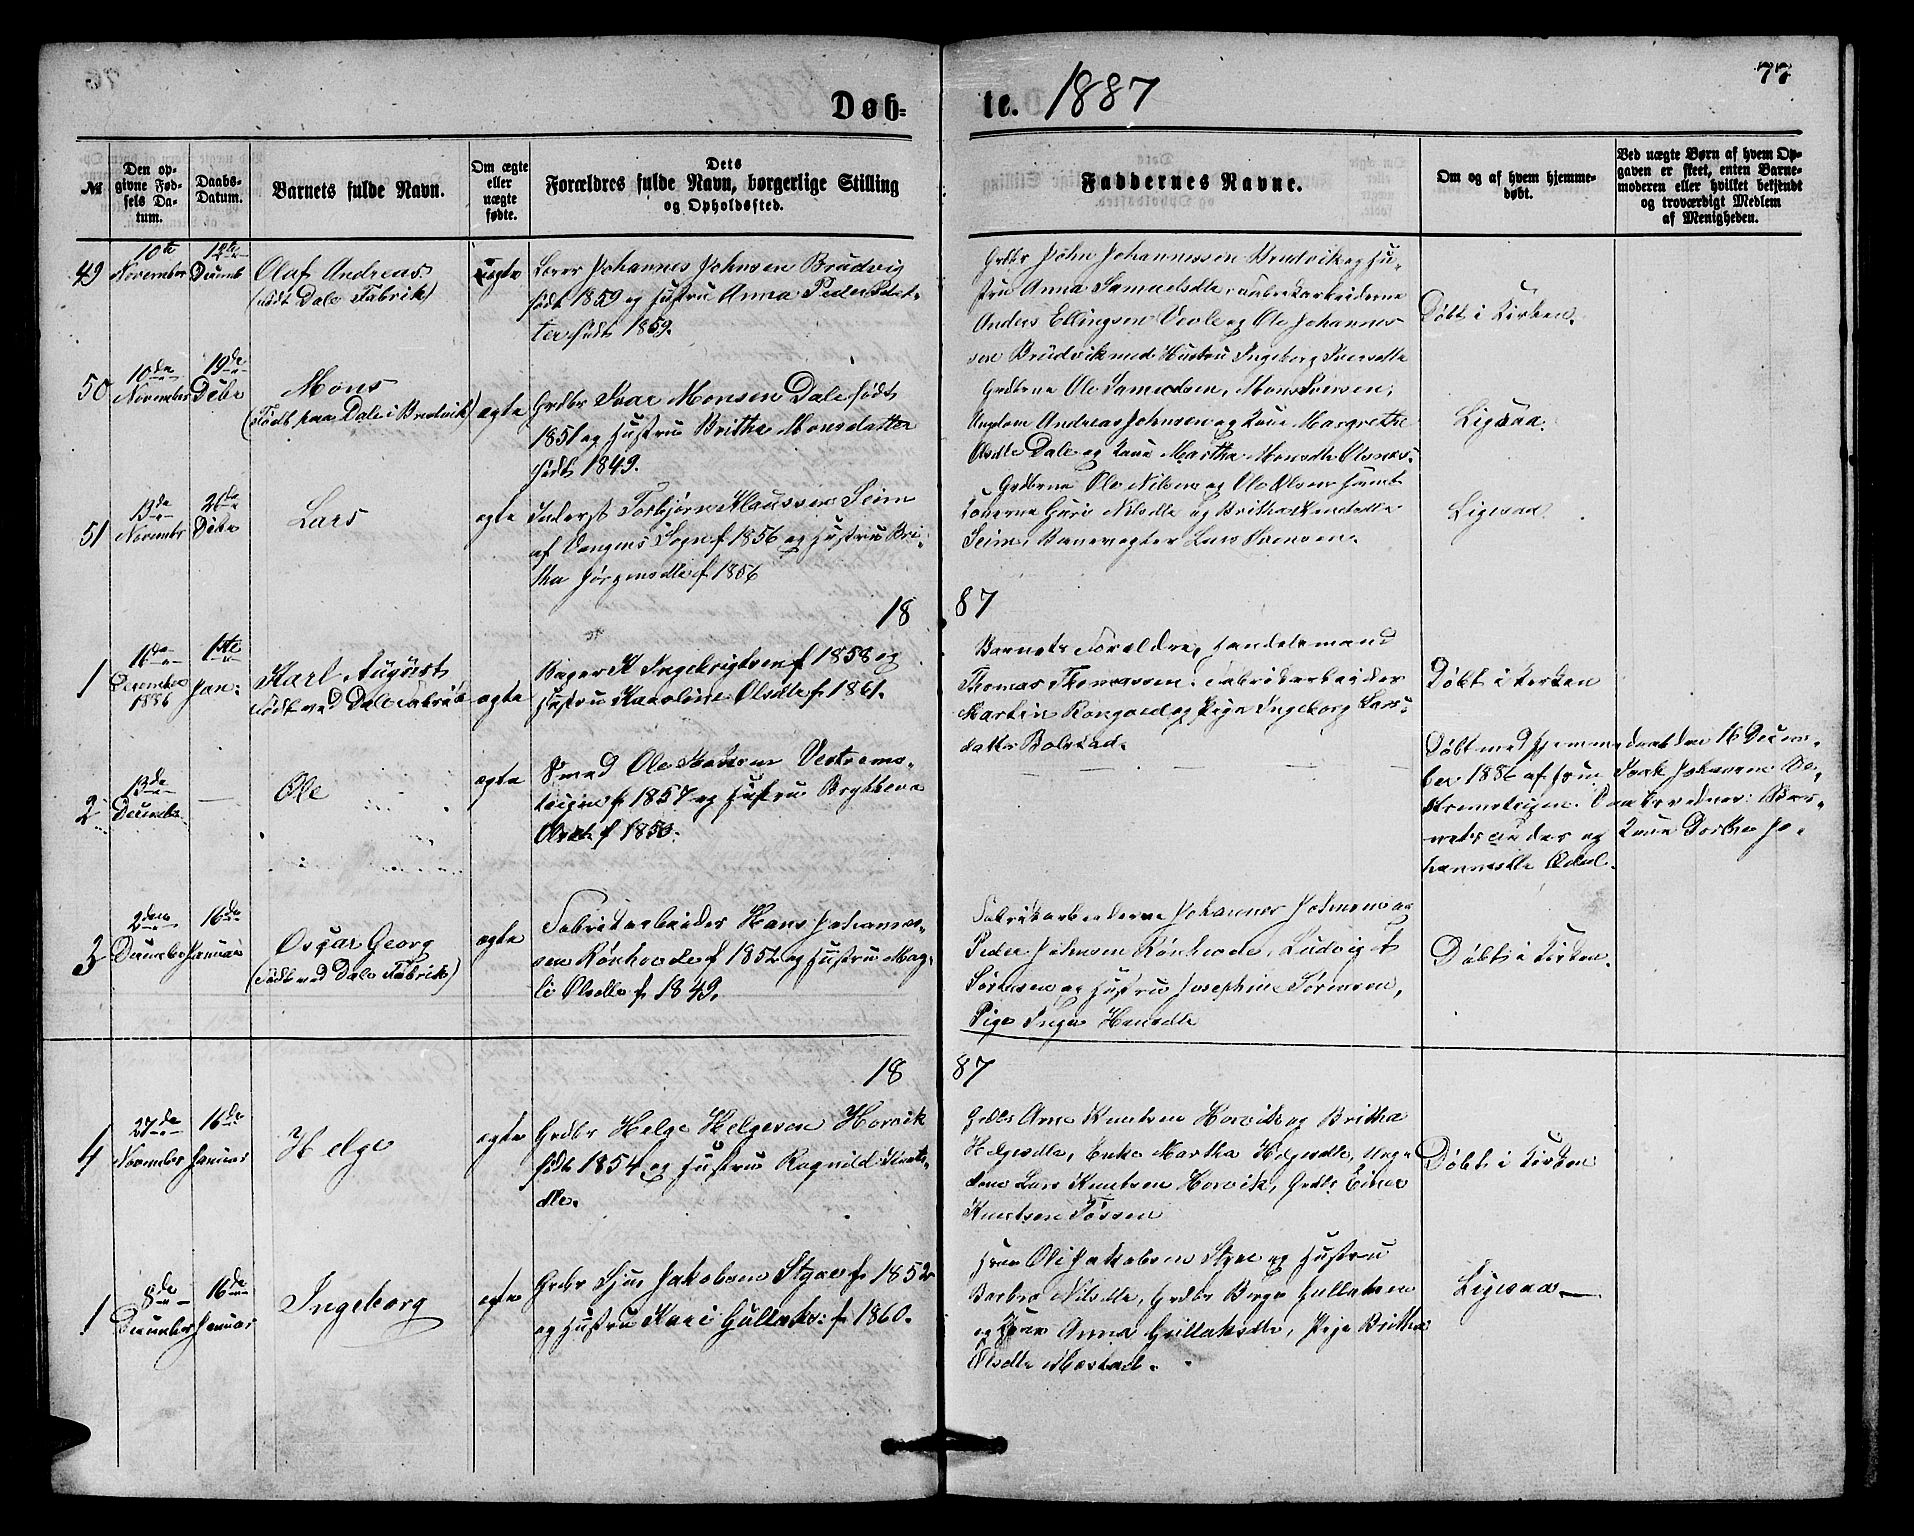 77
Døb-
te. 1887
№
Den op-
givne Fød-
sels Da-
tum.
Daabs-
Datum.
Barnets fulde Navn.
Om ægte
eller
uægte
fødte.
Dets
Forældres fulde Navn, borgerlige Stilling
og Opholdssted.
Faddernes Navne.
Om og af hvem hjemme-
døbt.
Ved uægte Børn af hvem Op-
gaven er skeet, enten Barne-
moderen eller hvilket bekjendt
og troværdigt Medlem
af Menigheden.
49
10de
November
12te
Decemb
Olaf Andreas
(født Dale Fabrik)
ægte
Lærer Johannes Johnsen Brudvig
født 1859 og Hustru Anna Peders Dat-
ter født 1859.
Grdbr John Johannessen Brudvik og Hu-
stru Anna Samuelsdtr, Fabrikarbeiderne
Anders Ellingsen Veole og Ole Johannes-
sen Brudvik med Hustru Ingeborg Iversdtr
Døbt i Kirken.
50
10de
November
19de
Debr
Mons
(Født paa Dale i Brudvik)
ægte
Grdbr Ivar Monsen Dale født
1851 og Hustru Britha Monsdatter
født 1849.
Grdbrne Ole Samuelsen, Mons Iversen,
Ungdom Andreas Johnsen og Kone Margrethe
Olsdtr Dale og Kone Martha Monsdtr Olsnes.
Ligesaa.
51
13de
November
26de
Debr
Lars
ægte
Inderst Torbjørn Klaussen Seim
af Vangens Sogn f 1856 og Hustru Bri-
tha Jørgensdtr f 1856
Grdbrne Ole Nilsen og Ole Olsen samt
Konerne Guri Nilsdtr og Britha Knudsdtr
Seim, Banevogter Lars Hansen.
Ligesaa.
18
87
1
16de
December
1886
1ste
Jan:
Karl August
Født ved Dale Fabrik
ægte
Bager K Ingebrigtsen f 1858 og
Hustru Karoline Olsdtr f. 1861.
Barnets Forældre, Handelsmand
Thomas Thomassen, Fabrikarbeider
Martin Rongved og Pige Ingeborg Lars-
datter Bolstad.
Døbt i Kirken
2
13de
December
Ole
ægte
Smed Ole Hansen Vestrems-
teigen f. 1857 og Hustru Brytteva
Olsdtr f 1853.
Døbt med Hjemmedaab den 16 Decem-
ber 1886 af Hans Isak Johannes Ve-
stremsteigen. Daabsvidner: Bar-
nets Fader og Kone Dorthea Jo-
hannesdtr Ødal.
3
2den
December
16de
Januar
Osçar Georg
(Født ved Dale Fabrik)
ægte
Fabrikarbeider Hans Johannes-
sen Rønhovde f 1852 og Hustru Mag-
li Olsdtr f. 1849.
Fabrikarbeiderne Johannes Johnsen og
Peder Johnsen Rønhovde, Ludvig A
Sørensen og Hustru Josephine Sørensen,
Pige Inga Hansdtr
Døbt i Kirken.
18
87
4
27de
November
16de
Januar
Helge
ægte
Grdbr Helge Helgesen Horvik
født 1854 og Hustru Ragnild Knuts-
dtr.
Grdbr Arne Knutsen Horvik og Britha
Helgesdtr, Enke Martha Helgesdtr, Ung-
dom Lars Knutsen Horvik, Grdbr Einar
Knutsen Fossen
Døbt i Kirken
1
8de
December
16de
Januar
Ingeborg
ægte
Grdbr Sjur Jakobsen Styve f. 1852
og Hustru Kari Gullaks: f. 1860.
Huus Ole Jakobsen Styve og Hustru
Barbra Nilsdtr, Grdbr Børge Gullaksen
og Kone Anna Gullaksdtr, Pige Britha
Olsdtr Mæstad.
Ligesaa